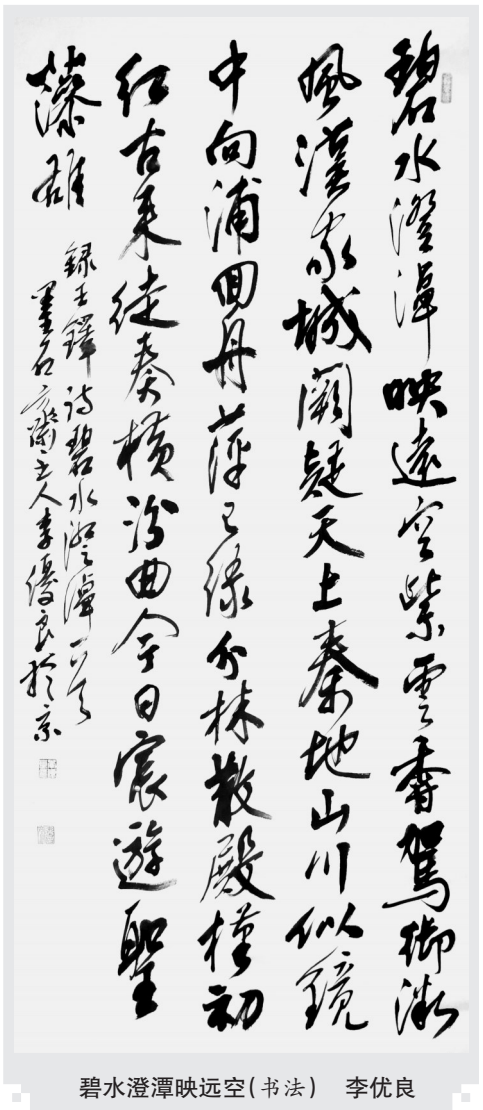 碧水澄潭映遠空紫雲香駕御微
風漢家城闕疑天上秦地山川似鏡
中向浦回舟萍已綠分林散殿槿初
紅古來徒奏橫汾曲今日宸遊聖
藻雄
錄王鐸詩碧水澄潭一首
墨石主人李優良於京
碧水澄潭映远空(书法) 李优良